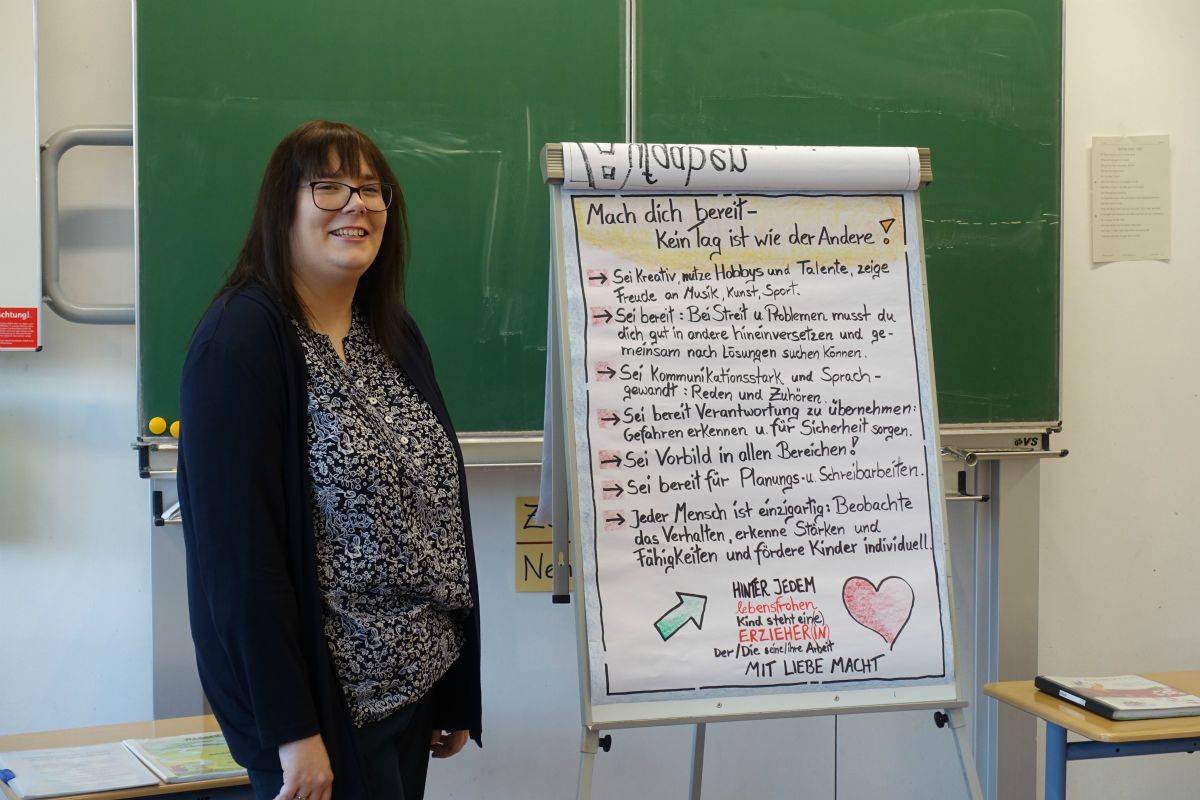 Aufgaben
Mach dich bereit-
Kein Tag ist wie der Andere!
→ Sei Kreativ, nutze Hobbys und Talente, zeige
Freude an Musik, Kunst, Sport.
→ Sei bereit: Bei Streit u. Problemen musst du
dich gut in andere hineinversetzen und ge-
meinsam nach Lösungen suchen können.
→ Sei Kommunikationsstark und Sprach-
gewandt: Reden und Zuhören.
→ Sei bereit Verantwortung zu übernehmen:
Gefahren erkennen u. für Sicherheit sorgen.
→ Sei Vorbild in allen Bereichen!
→ Sei bereit für Planungs- u. Schreibarbeiten.
→ Jeder Mensch ist einzigartig: Beobachte
das Verhalten, erkenne Stärken und
Fähigkeiten und fördere Kinder individuell.
HINTER JEDEM
lebensfrohen
Kind steht ein(e)
ERZIEHER(IN)
Der/Die seine/ihre Arbeit
MIT LIEBE MACHT
chtung!
VS
Ne